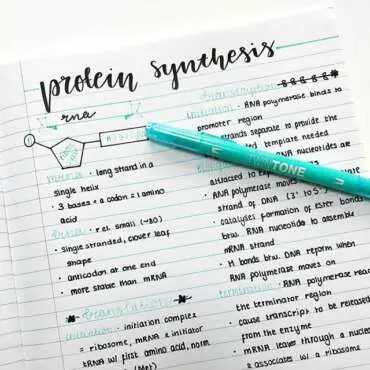 protein synthesis
rna
mrna · long strand in a
single helix
· 3 bases = a codon = 1 amino
acid
trna · rel. small (~80)
· single stranded, clover leaf
shape
· anticodon at one end
· more stable than mRNA
translation
initiation · initiation complex
= ribosome, mRNA & initiator
tRNA w/ first amino acid, norm.
(Met)
transcription
initiation · RNA polymerase binds to
promoter region
strands separate to provide the
template needed
RNA nucleotides are
attracted to
· RNA polymerase moves
strand of DNA (3' to 5')
· catalyses formation of ester bonds
btw. RNA nucleotides to assemble
mRNA strand
· H bonds btw. DNA reform when
RNA polymerase moves on
termination · RNA polymerase
the terminator region
· cause transcript to be released
from the enzyme
· mRNA leaves through a
& associates w/ a ribosome
TWINTONE